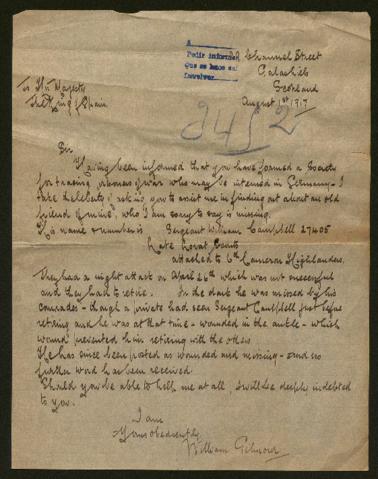 A
Pedir informes
Channel Street
Galashiels
Scotland
August 1st 1917
To His Majesty
The King of Spain
2452
Sir
Having been informed that you have formed a Society
for tracing prisoners of war who may be interned in Germany - I
take the liberty of asking you to assist me in finding out about an old
friend of mine, who I am sorry to say is missing.
His name & number is Sergeant William Campbell 27405
Late Lovat Scouts
attached to 6th Cameron Highlanders.
They had a night attack on April 26th which was not successful
and they had to retire. In the dark he was missed by his
comrades - though a private had seen Sergeant Campbell just before
retiring and he was at that time - wounded in the ankle - which
wound prevented him retiring with the others
He has since been posted as wounded and missing - and no
further word has been received
Should you be able to help me at all, I will be deeply indebted
to you.
I am
Yours obediently
William Gilmour